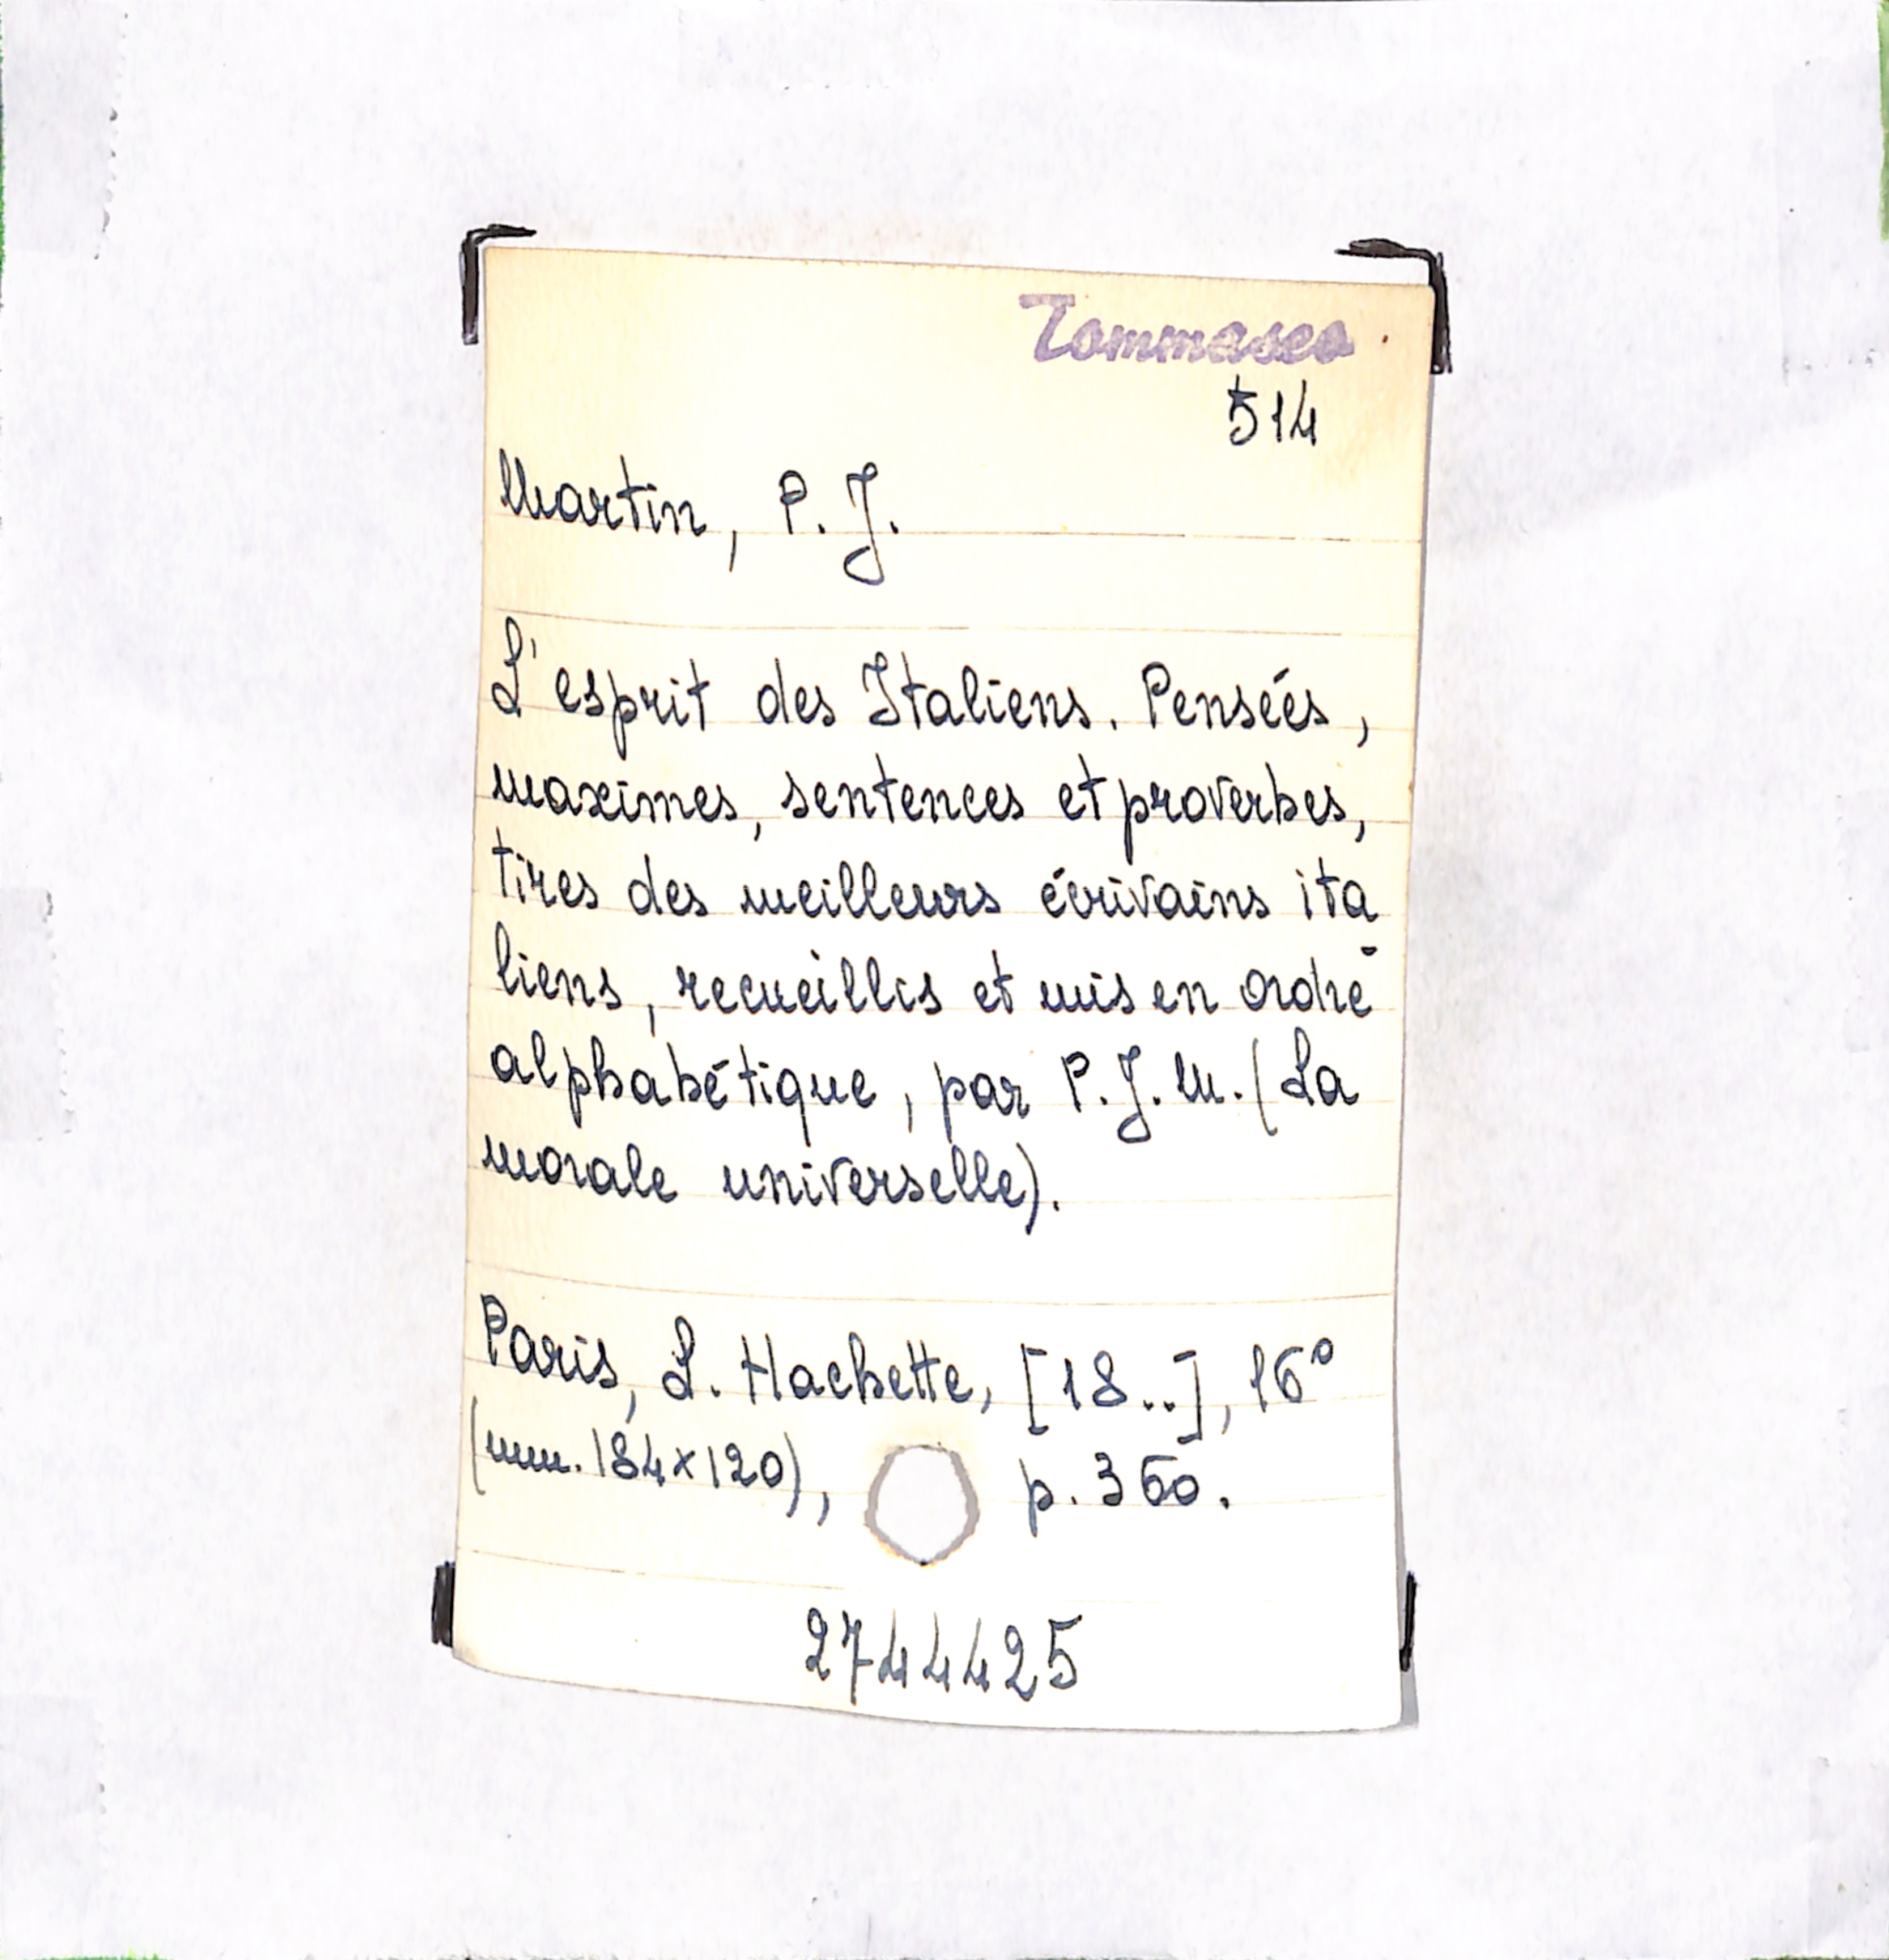 Tommaseo
514
Martin, P. J.
L'esprit des Italiens. Pensées,
maximes, sentences et proverbes,
tires des meilleurs écrivains ita-
liens, recueillis et mis en ordre
alphabétique, par P. J. M. (La
morale universelle).
Paris, L. Hachette, [18..], 16°
(mm. 184x120), p. 360.
2744425